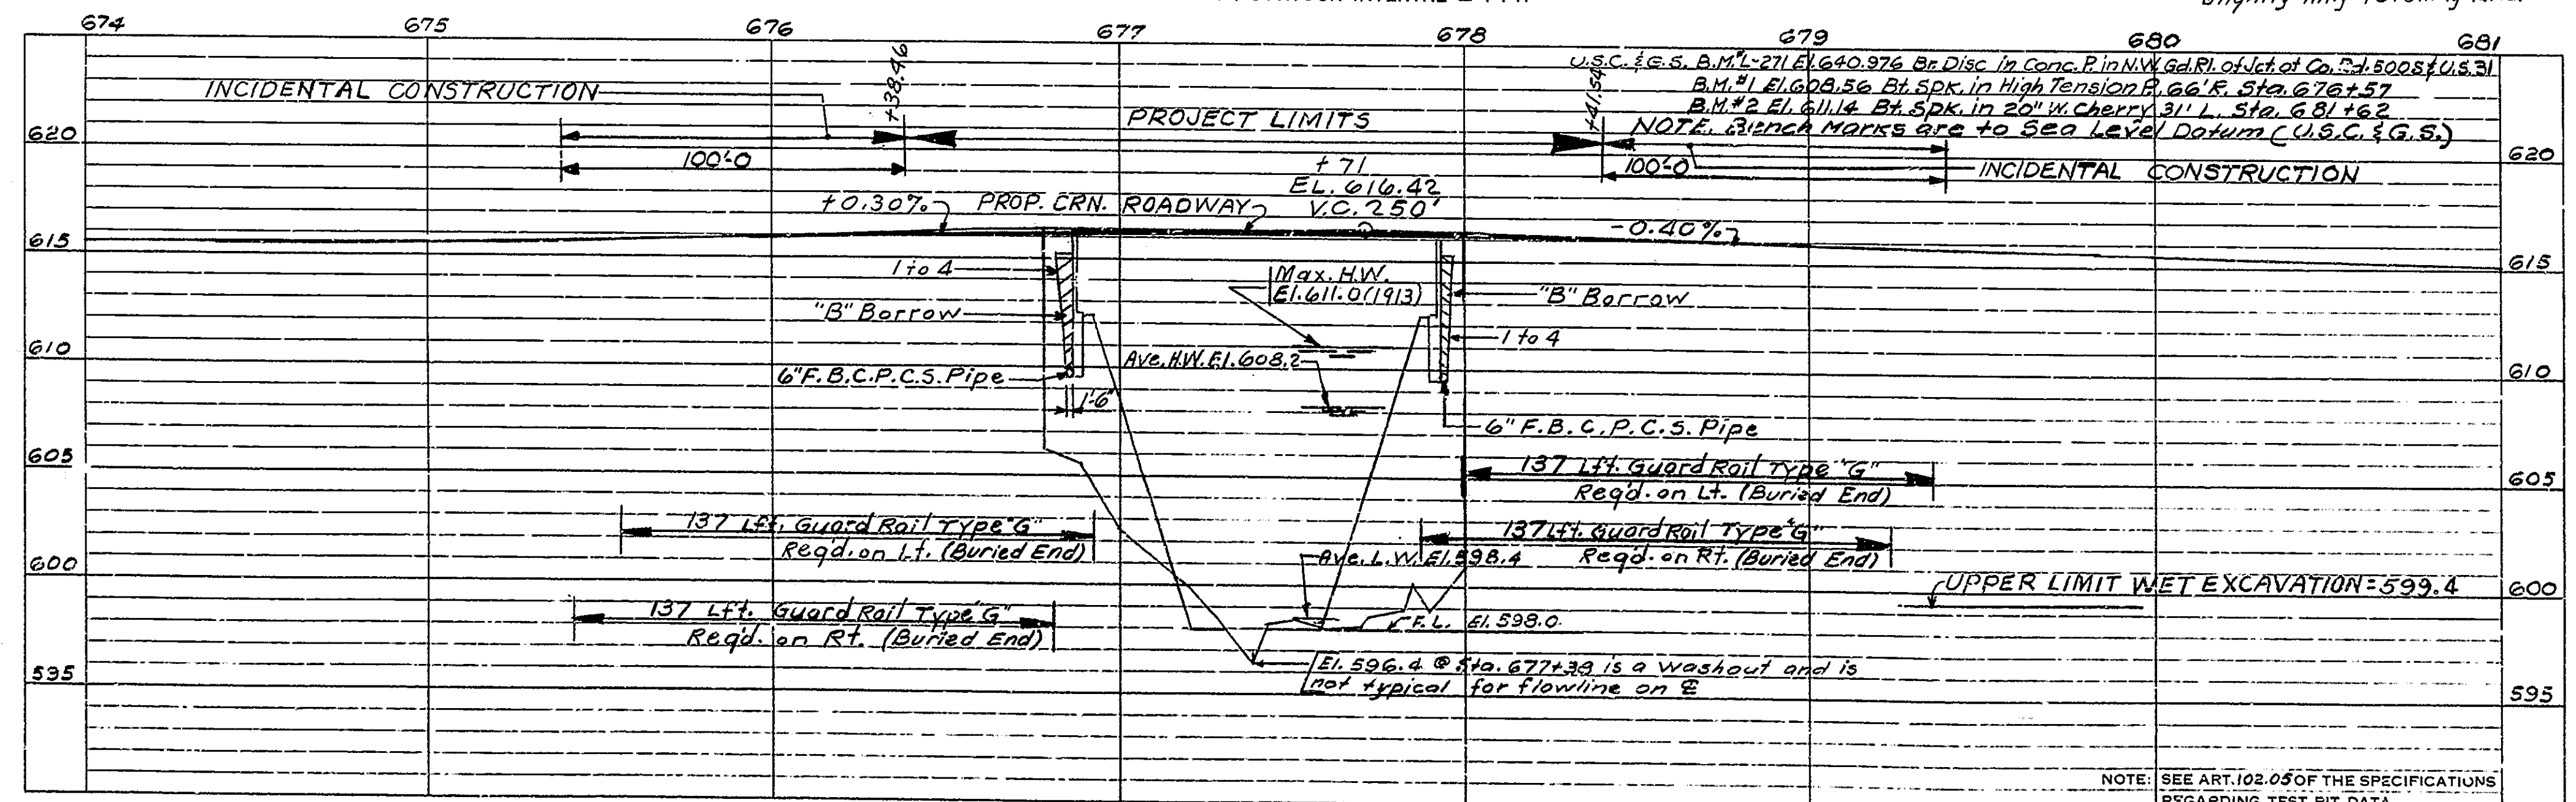 674 675 676 677 678 679 680 681
U.S.C. & G.S. B.M.#L-271 El.640.976 Br. Disc in Conc. P. in N.W. Gd. Rl. of Jct. of Co. Rd. 500S & U.S.31
B.M.#1 El.608.56 Bt. Spk. in High Tension P. 66'R. Sta. 676+57
B.M.#2 El.611.14 Bt. Spk. in 20" W. Cherry 31' L. Sta. 681+62
NOTE. Bench Marks are to Sea Level Datum (U.S.C. & G.S.)
INCIDENTAL CONSTRUCTION
+38.46
+41.54
PROJECT LIMITS
620
620
100'-0
100'-0
INCIDENTAL CONSTRUCTION
+71
EL. 616.42
V.C. 250'
+0.30%
PROP. CRN. ROADWAY
-0.40%
615
615
1 to 4
Max. H.W.
El.611.0(1913)
"B" Borrow
"B" Borrow
1 to 4
610
610
Ave. H.W. El.608.2
6" F.B.C.P.C.S. Pipe
1'-6"
6" F.B.C.P.C.S. Pipe
605
605
137 Lft. Guard Rail Type "G"
Req'd. on Lt. (Buried End)
137 Lft. Guard Rail Type "G"
Req'd. on Lt. (Buried End)
137 Lft. Guard Rail Type "G"
Req'd. on Rt. (Buried End)
Ave. L.W. El.598.4
600
600
UPPER LIMIT WET EXCAVATION=599.4
137 Lft. Guard Rail Type "G"
Req'd. on Rt. (Buried End)
F.L. El. 598.0
El. 596.4 @ Sta. 677+39 is a washout and is
not typical for flowline on ℄
595
595
NOTE: SEE ART.102.05 OF THE SPECIFICATIONS
REGARDING TEST PIT DATA